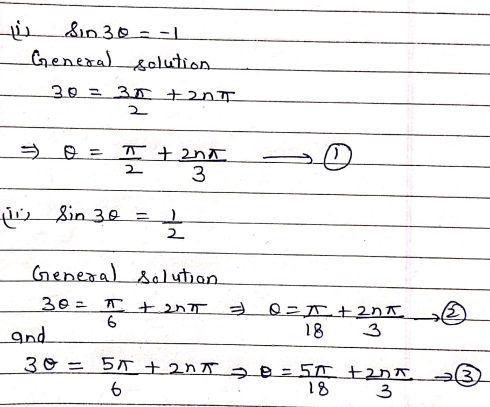 (i) Sin 3θ = -1
General solution
3θ = 3π/2 + 2nπ
⇒ θ = π/2 + 2nπ/3 ⟶ ①
(ii) Sin 3θ = 1/2
General solution
3θ = π/6 + 2nπ ⇒ θ = π/18 + 2nπ/3 → ②
and
3θ = 5π/6 + 2nπ ⇒ θ = 5π/18 + 2nπ/3 → ③